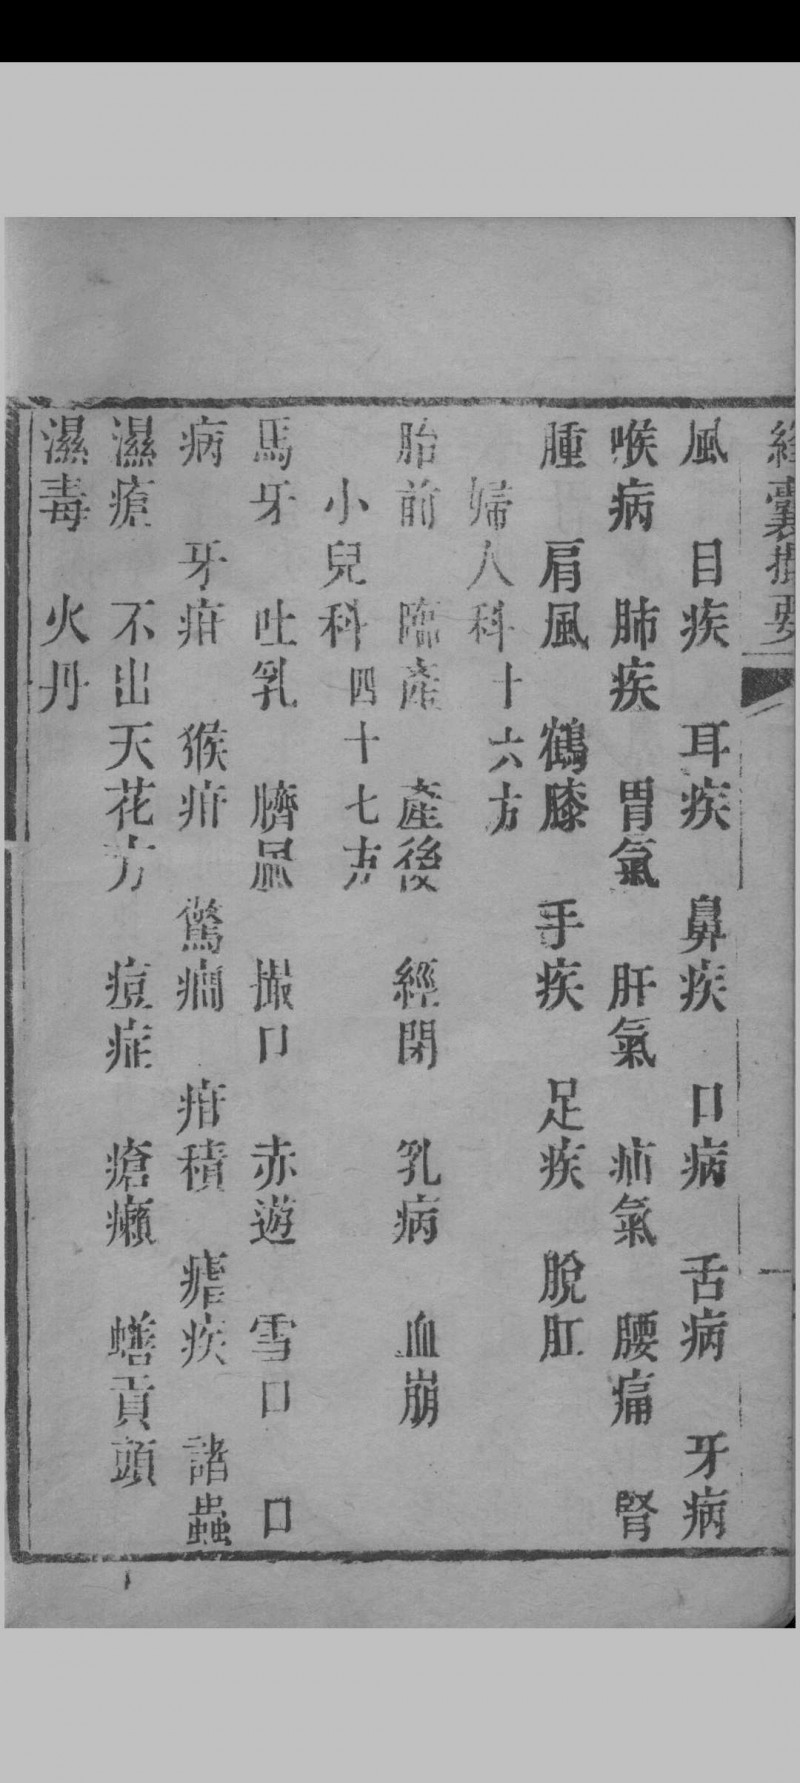 絳囊撮要
風　目疾　耳疾　鼻疾　口病　舌病　牙病
喉病　肺疾　胃氣　肝氣　疝氣　腰痛　腎
腫　肩風　鶴膝　手疾　足疾　脫肛
婦人科十六方
胎前　臨產　產後　經閉　乳病　血崩
小兒科四十七方
馬牙　吐乳　臍風　撮口　赤遊　雪口　口
病　牙疳　猴疳　驚癎　疳積　瘧疾　諸蟲
濕瘡　不出天花方　痘症　瘡癩　蟮貢頭
濕毒　火丹